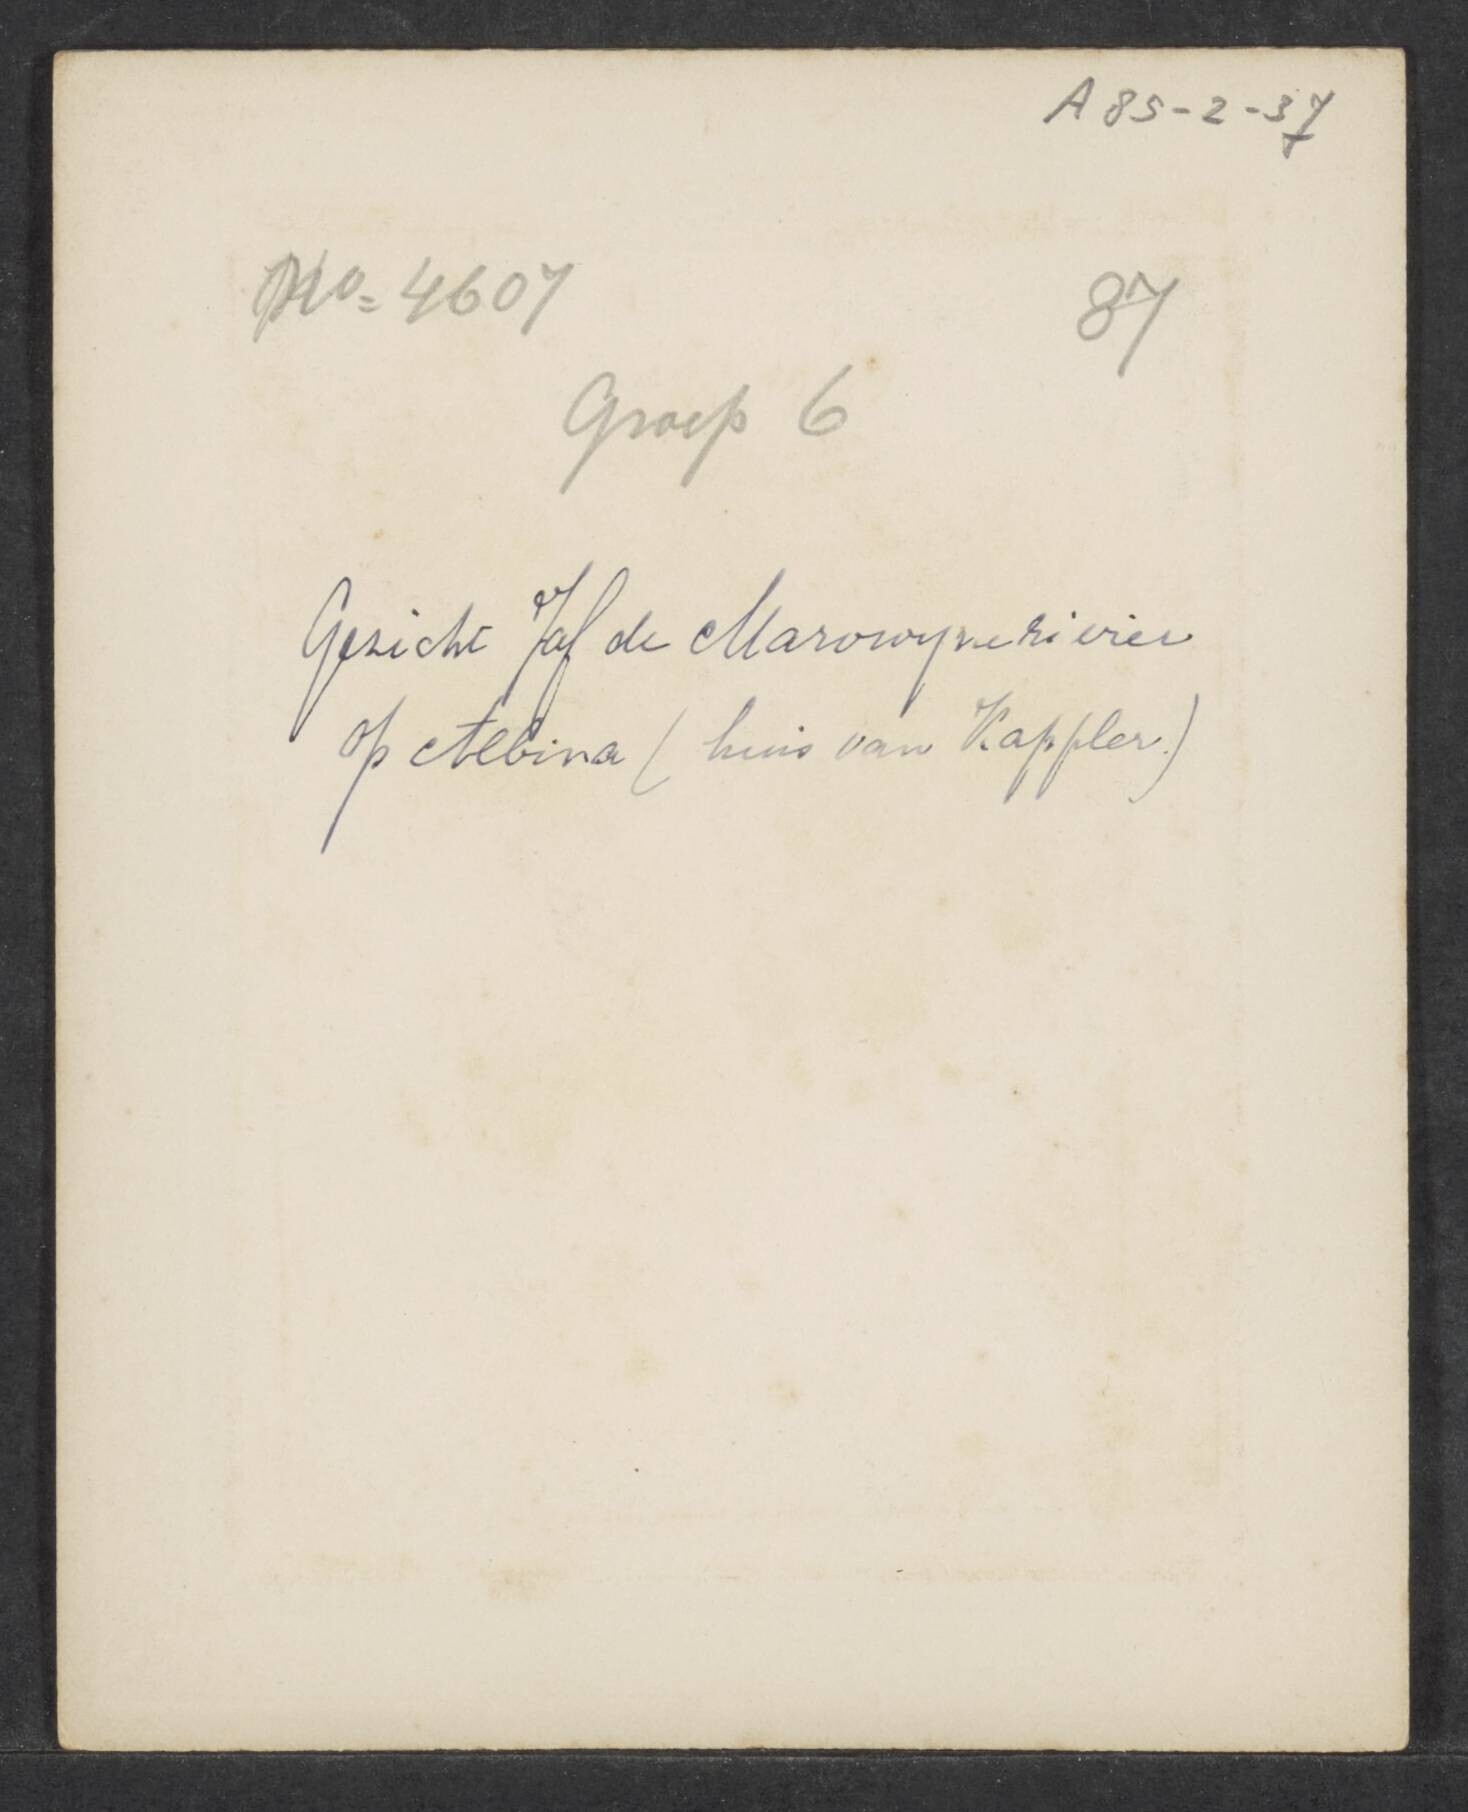 A 85-2-37
No= 4607 87
Groep 6
Gezicht v/af de Marowynerivier
op Albina (huis van Kappler.)